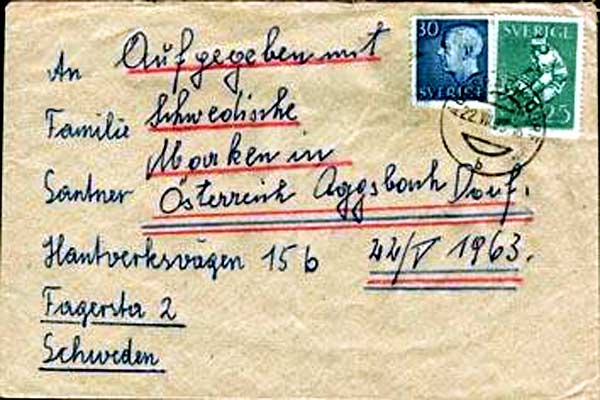 An
Familie
Santner
Hantverksvägen 15 b
Fagersta 2
Schweden
Aufgegeben mit
Schwedische
Marken in
Österreich Aggsbach Dorf.
22/V 1963.
30
SVERIGE
SVERIGE
25